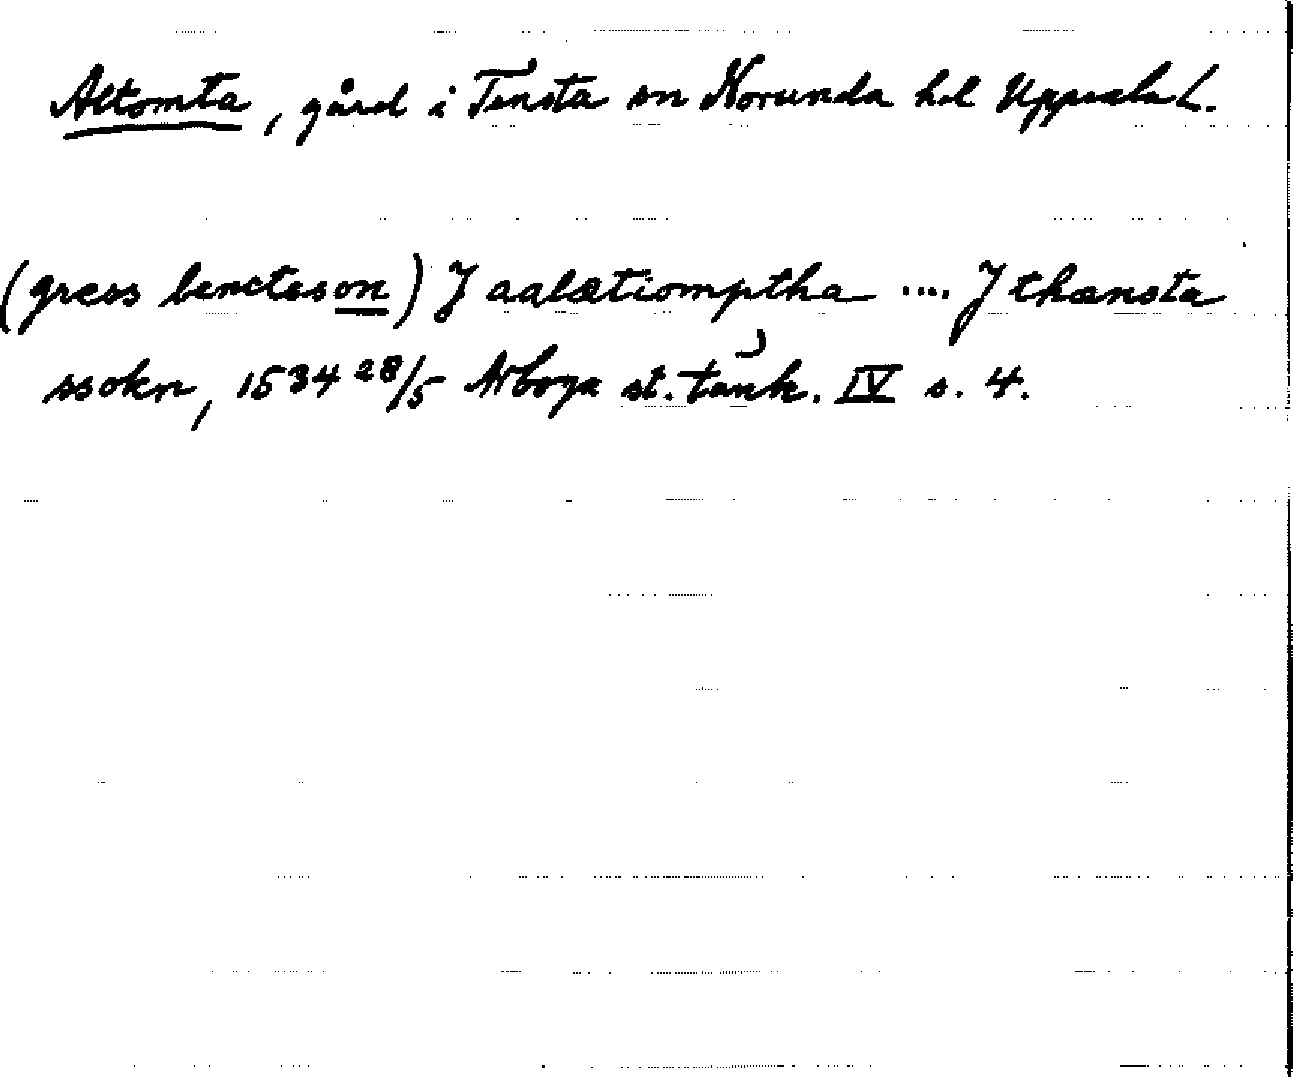 Altomta, gård i Tensta sn Norunda hd Uppsala L.
(gress benctesson) J aalætiomptha .... J thænsta
ssokn, 1534 28/5 Arboga st. tänk. IV s. 4.